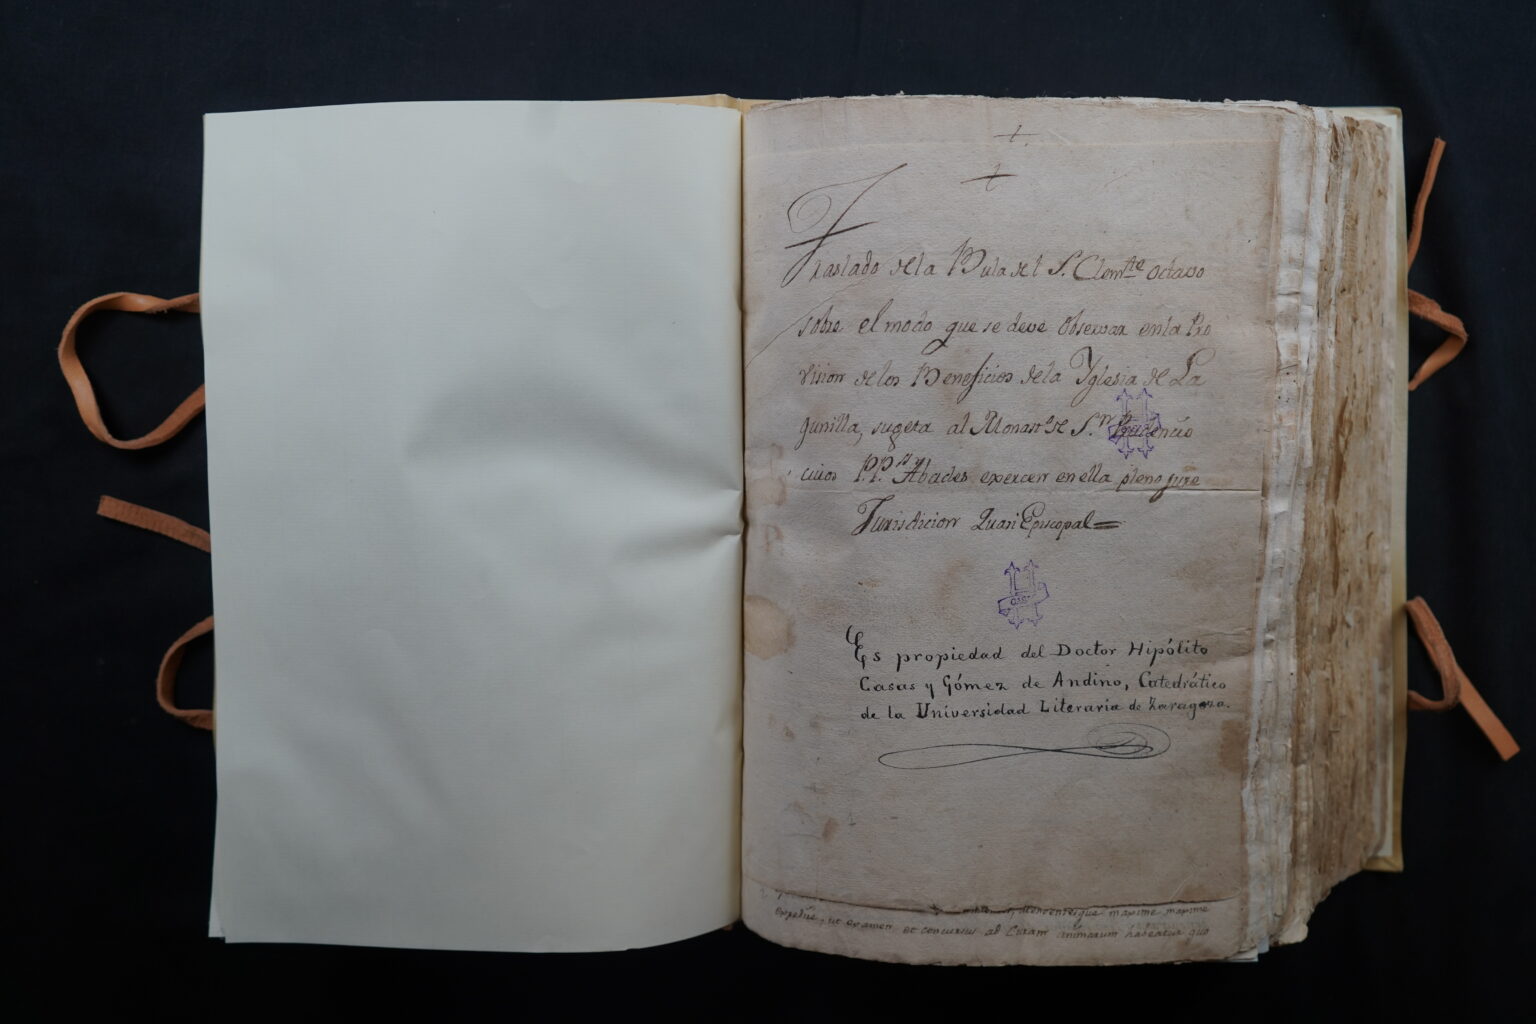 Traslado de la Bula del S. Clemte Octavo
sobre el modo que se deve observar en la Pro
vision de los Beneficios de la Yglesia de La
gunilla, sugeta al Monasto de Sn Prudencio
cuios P.P.s Abades exercen en ella pleno jure
Jurisdicion Quasi Episcopal =
CASAS
Es propiedad del Doctor Hipólito
Casas y Gómez de Andino, Catedrático
de la Universidad Literaria de Zaragoza.
maxime maxime
ut examen et concursus ad Curam animarum habeatur quo